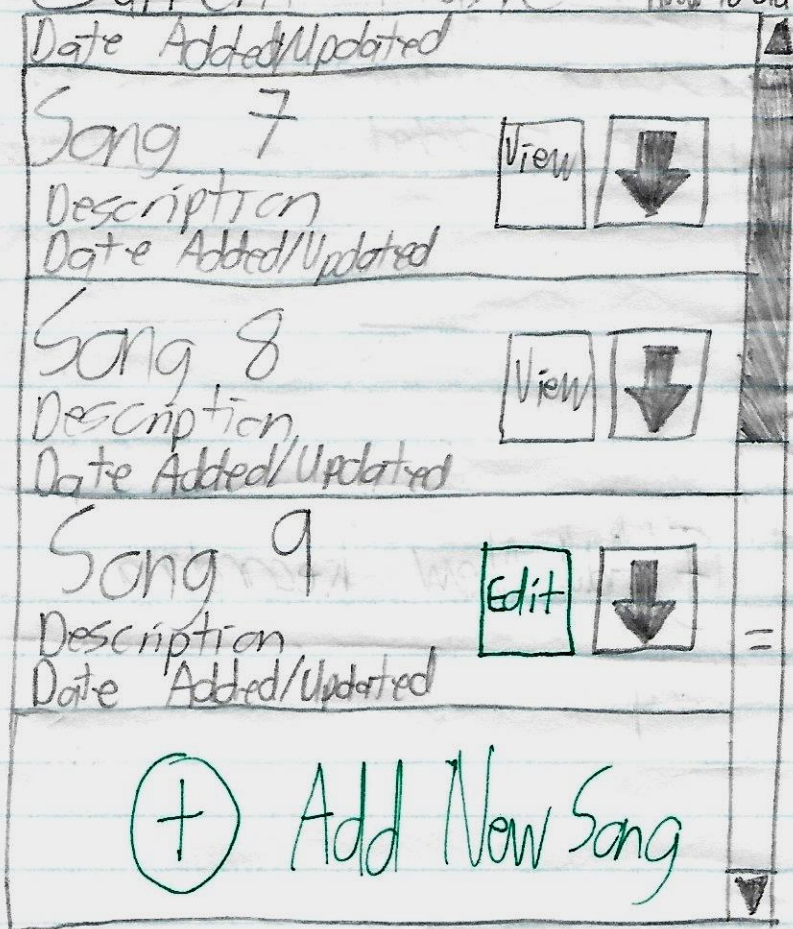 Date Added/Updated
Song 7
View
Description
Date Added/Updated
Song 8
View
Description
Date Added/Updated
Song 9
Edit
Description
Date Added/Updated
+ Add New Song